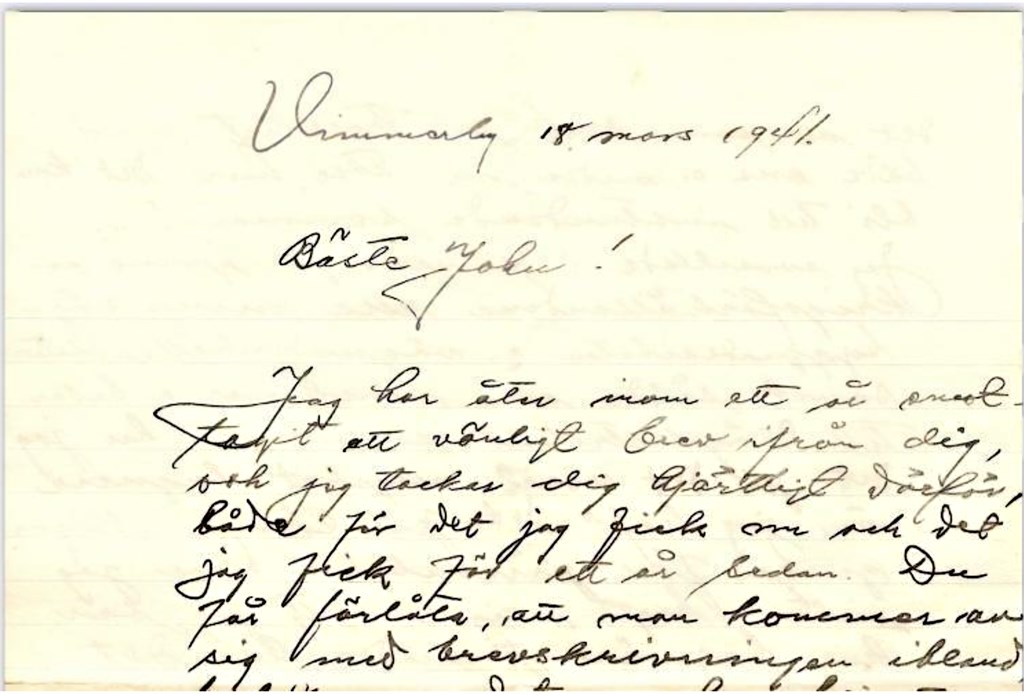 Vimmerby 18 mars 1941.
Bäste John!
Jag har åter inom ett år emot-
tagit ett vänligt brev ifrån dig,
och jag tackar dig hjärtligt därför,
både för det jag fick nu och det
jag fick för ett år sedan. Du
får förlåta, att man kommer av
sig med brevskrivningen ibland